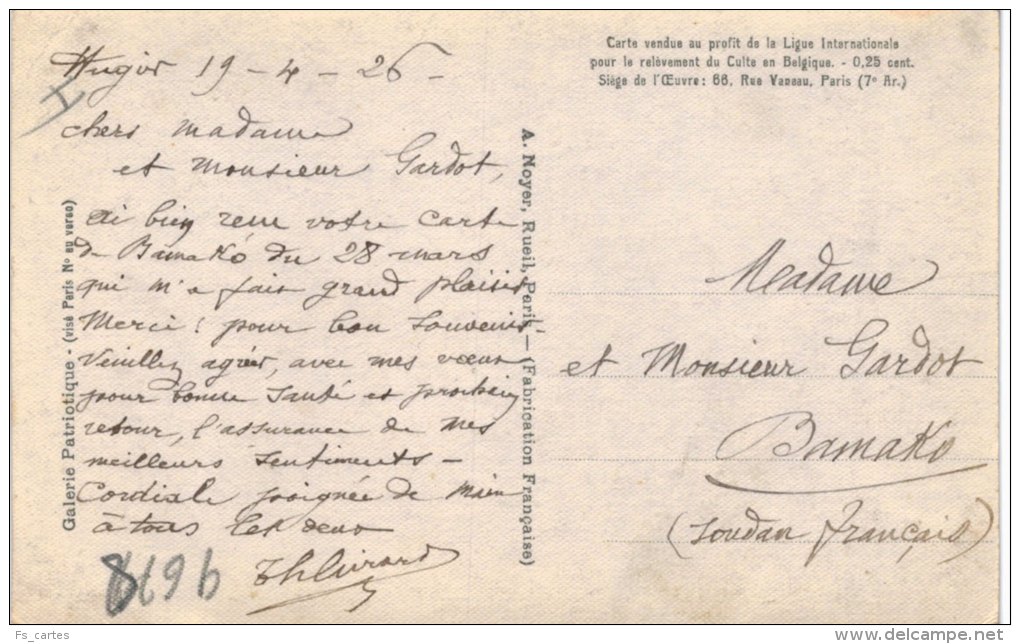 19 - 4 - 26 -
chers madame
et monsieur Gardot,
ai bien reçu votre carte
de Bamako du 28 mars
qui m'a fait grand plaisir
Merci ! pour bon souvenir -
Veuillez agréer, avec mes vœux
pour bonne santé et prochain
retour, l'assurance de mes
meilleurs sentiments -
Cordiale poignée de main
à tous les deux
Galerie Patriotique - (visé Paris No au verso)
A. Noyer, Rueil, Paris — (Fabrication Française)
Carte vendue au profit de la Ligue Internationale
pour le relèvement du Culte en Belgique. - 0,25 cent.
Siège de l'Œuvre : 66, Rue Vaneau, Paris (7e Ar.)
Madame
et Monsieur Gardot
Bamako
(soudan français)
Fs_cartes
delcampe.net